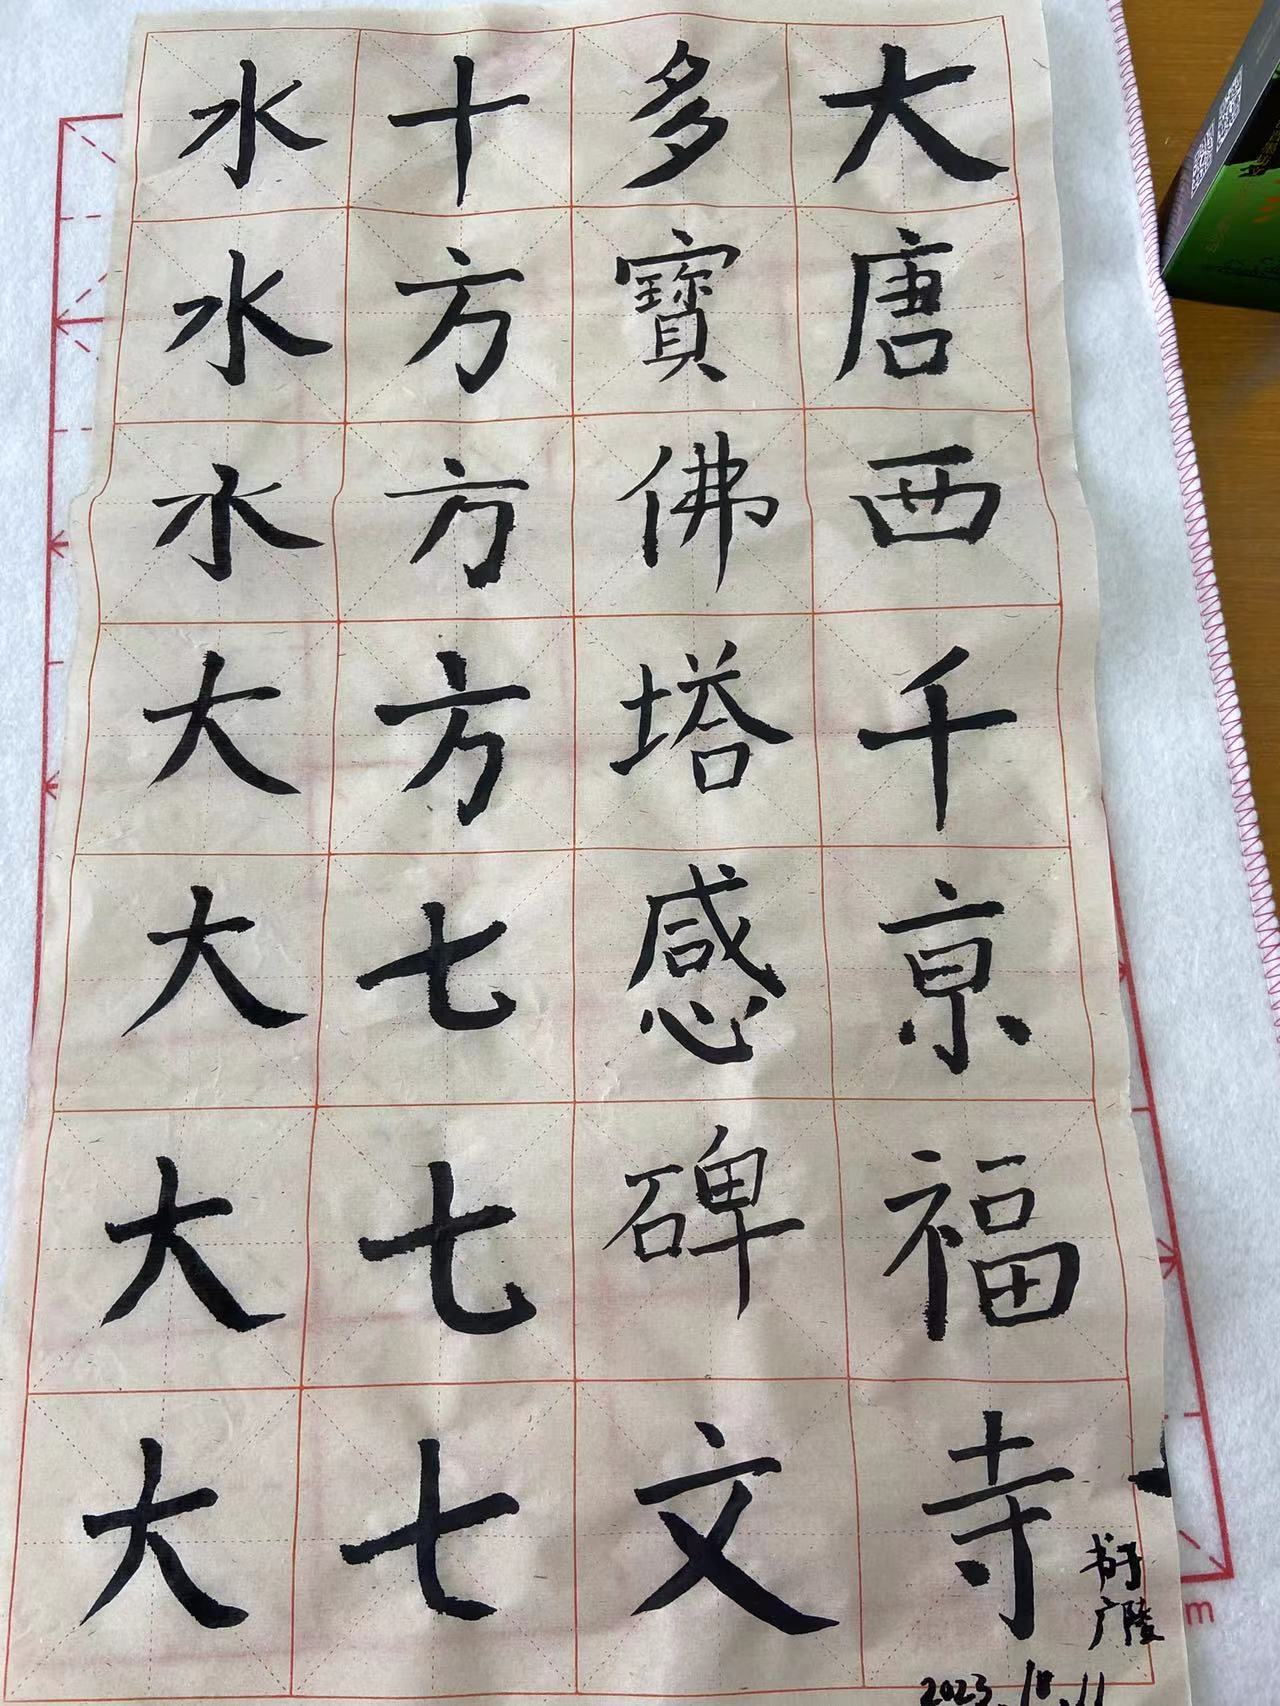 大唐西千亰福寺
多寶佛塔感碑文
十方方方七七七
水水水大大大大
书于
广陵
2023.10.11
m